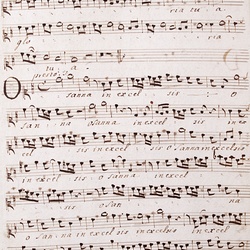 ria tu a
glo
tu a
presto
Osanna in excel sis o
san na osanna in excel sis in excelsis
cel sis osanna in ex cel
in excel sis o sanna in excel
sis o san na
o sanna in excel sis in excelsis in
cel sis